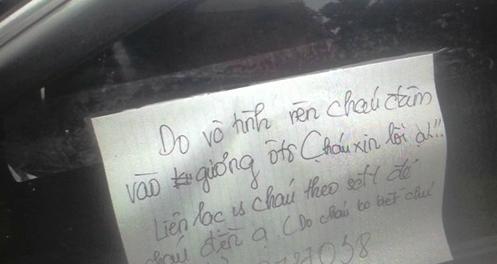 Do vô tình nên cháu đâm
vào gương ôtô (cháu xin lỗi ạ!..
Liên lạc vs cháu theo số đt để
cháu đền ạ (Do cháu ko biết chú
7038